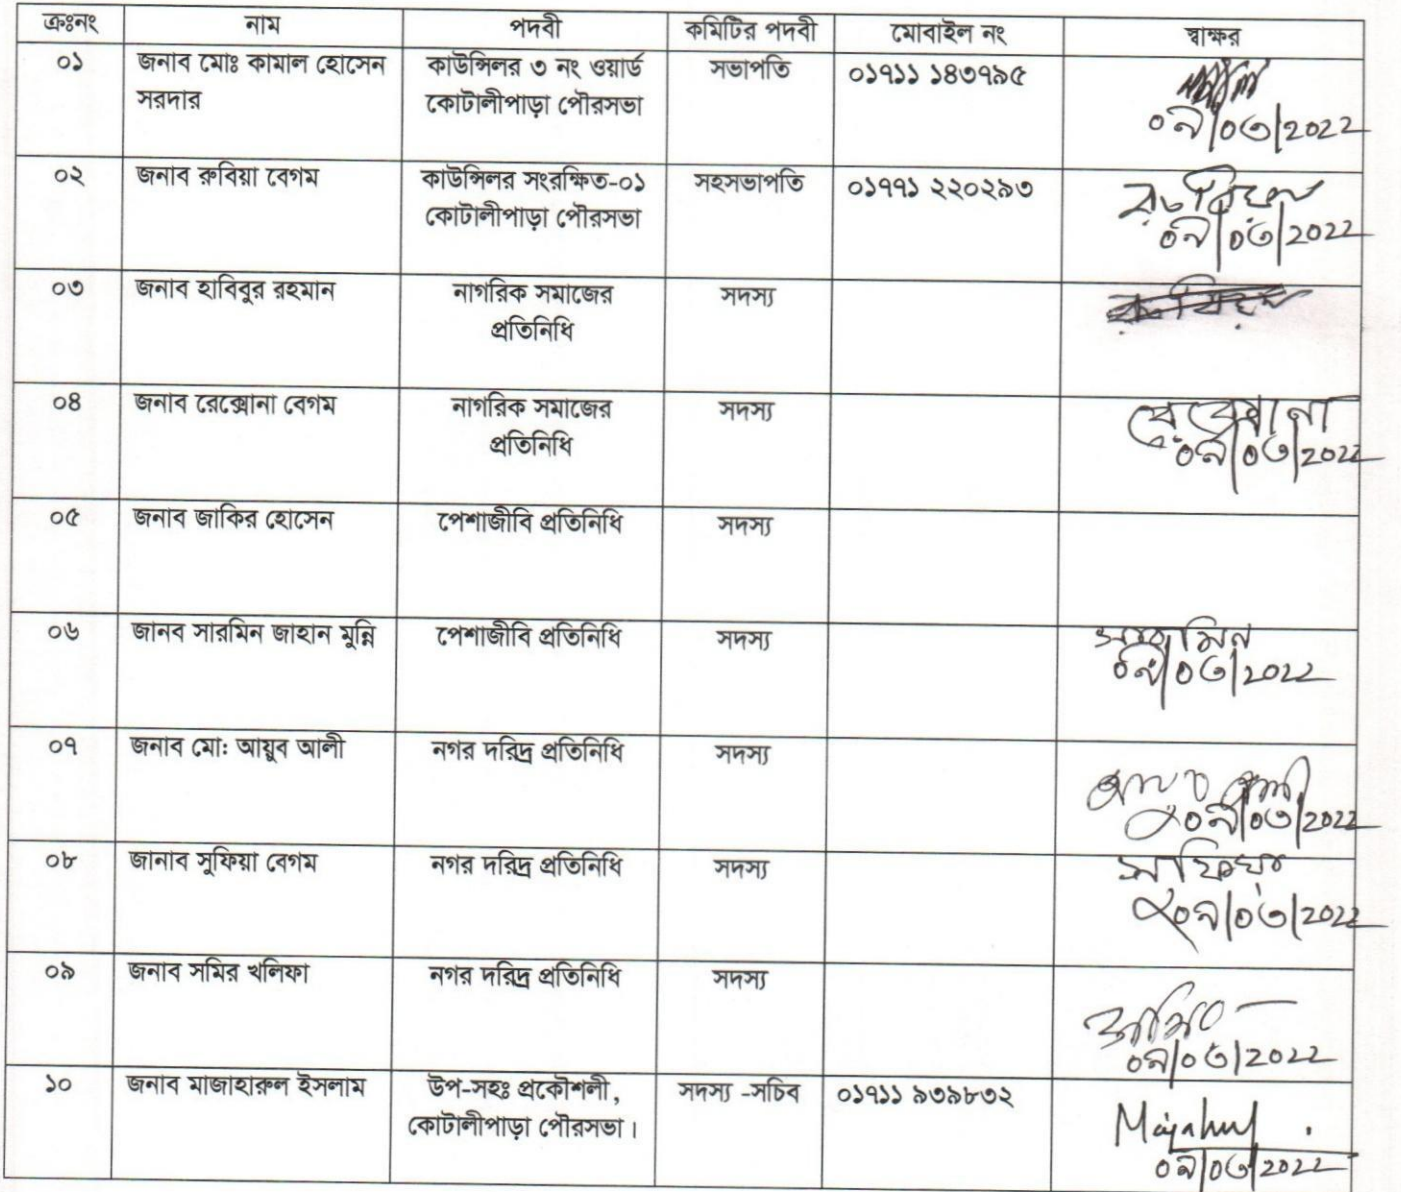 ক্রঃনং নাম পদবী কমিটির পদবী মোবাইল নং স্বাক্ষর
০১ জনাব মোঃ কামাল হোসেন কাউন্সিলর ৩ নং ওয়ার্ড সভাপতি ০১৭১১ ১৪৩৭৯৫
সরদার কোটালীপাড়া পৌরসভা
০৯/০৩/2022
০২ জনাব রুবিয়া বেগম কাউন্সিলর সংরক্ষিত-০১ সহসভাপতি ০১৭৭১ ২২০২৯৩ রুবিয়া
কোটালীপাড়া পৌরসভা ০৯/০৩/2022
০৩ জনাব হাবিবুর রহমান নাগরিক সমাজের সদস্য
প্রতিনিধি
০৪ জনাব রেক্সোনা বেগম নাগরিক সমাজের সদস্য
প্রতিনিধি ০৯/০৩/2022
০৫ জনাব জাকির হোসেন পেশাজীবি প্রতিনিধি সদস্য
০৬ জানব সারমিন জাহান মুন্নি পেশাজীবি প্রতিনিধি সদস্য সারমিন
০৯/০৩/2022
০৭ জনাব মো: আয়ুব আলী নগর দরিদ্র প্রতিনিধি সদস্য
০৯/০৩/2022
০৮ জানাব সুফিয়া বেগম নগর দরিদ্র প্রতিনিধি সদস্য
০৯/০৩/2022
০৯ জনাব সমির খলিফা নগর দরিদ্র প্রতিনিধি সদস্য
০৯/০৩/2022
১০ জনাব মাজাহারুল ইসলাম উপ-সহঃ প্রকৌশলী, সদস্য -সচিব ০১৭১১ ৯৩৯৮৩২
কোটালীপাড়া পৌরসভা।
০৯/০৩/2022